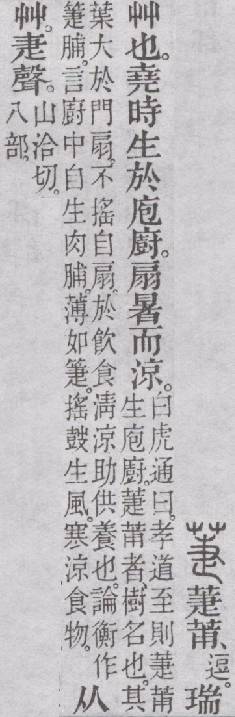 萐 萐莆、逗。瑞
艸也。堯時生於庖廚。扇暑而涼。
白虎通曰。孝道至則萐莆
生庖廚。萐莆者、樹名也。其
葉大於門扇。不搖自扇。於飲食清涼助供養也。論衡作
箑脯。言廚中自生肉脯。薄如箑。搖鼓生風。寒涼食物。
从
艸疌聲。
山洽切。
八部。